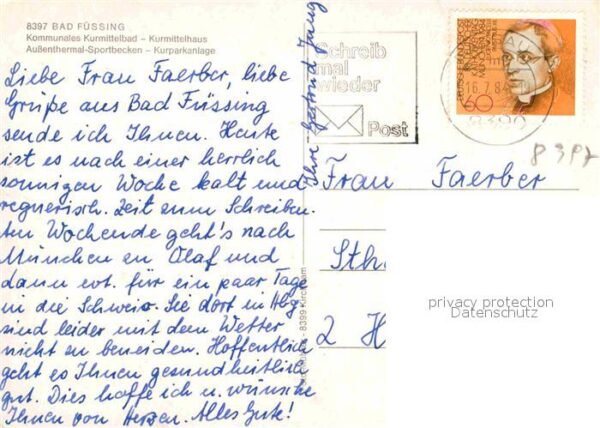 8397 BAD FÜSSING
Kommunales Kurmittelbad – Kurmittelhaus
Außenthermal-Sportbecken – Kurparkanlage
Liebe Frau Faerber, liebe
Grüße aus Bad Füssing
sende ich Ihnen. Heute
ist es nach einer herrlich
sonnigen Woche kalt und
regnerisch. Zeit zum Schreiben.
Am Wochende geht's nach
München zu Olaf und
dann evt. für ein paar Tage
in die Schweiz. Sie dort in Hbg.
sind leider mit dem Wetter
nicht zu beneiden. Hoffentlich
geht es Ihnen gesundheitlich
gut. Dies hoffe ich u. wünsche
Ihnen von Herzen. Alles Gute!
Ihre Gertrud Jung
Schreib
mal
wieder
Post
16.7.84
8390
60
8397
Frau Faerber
Sth
2 H
8399
privacy protection
Datenschutz